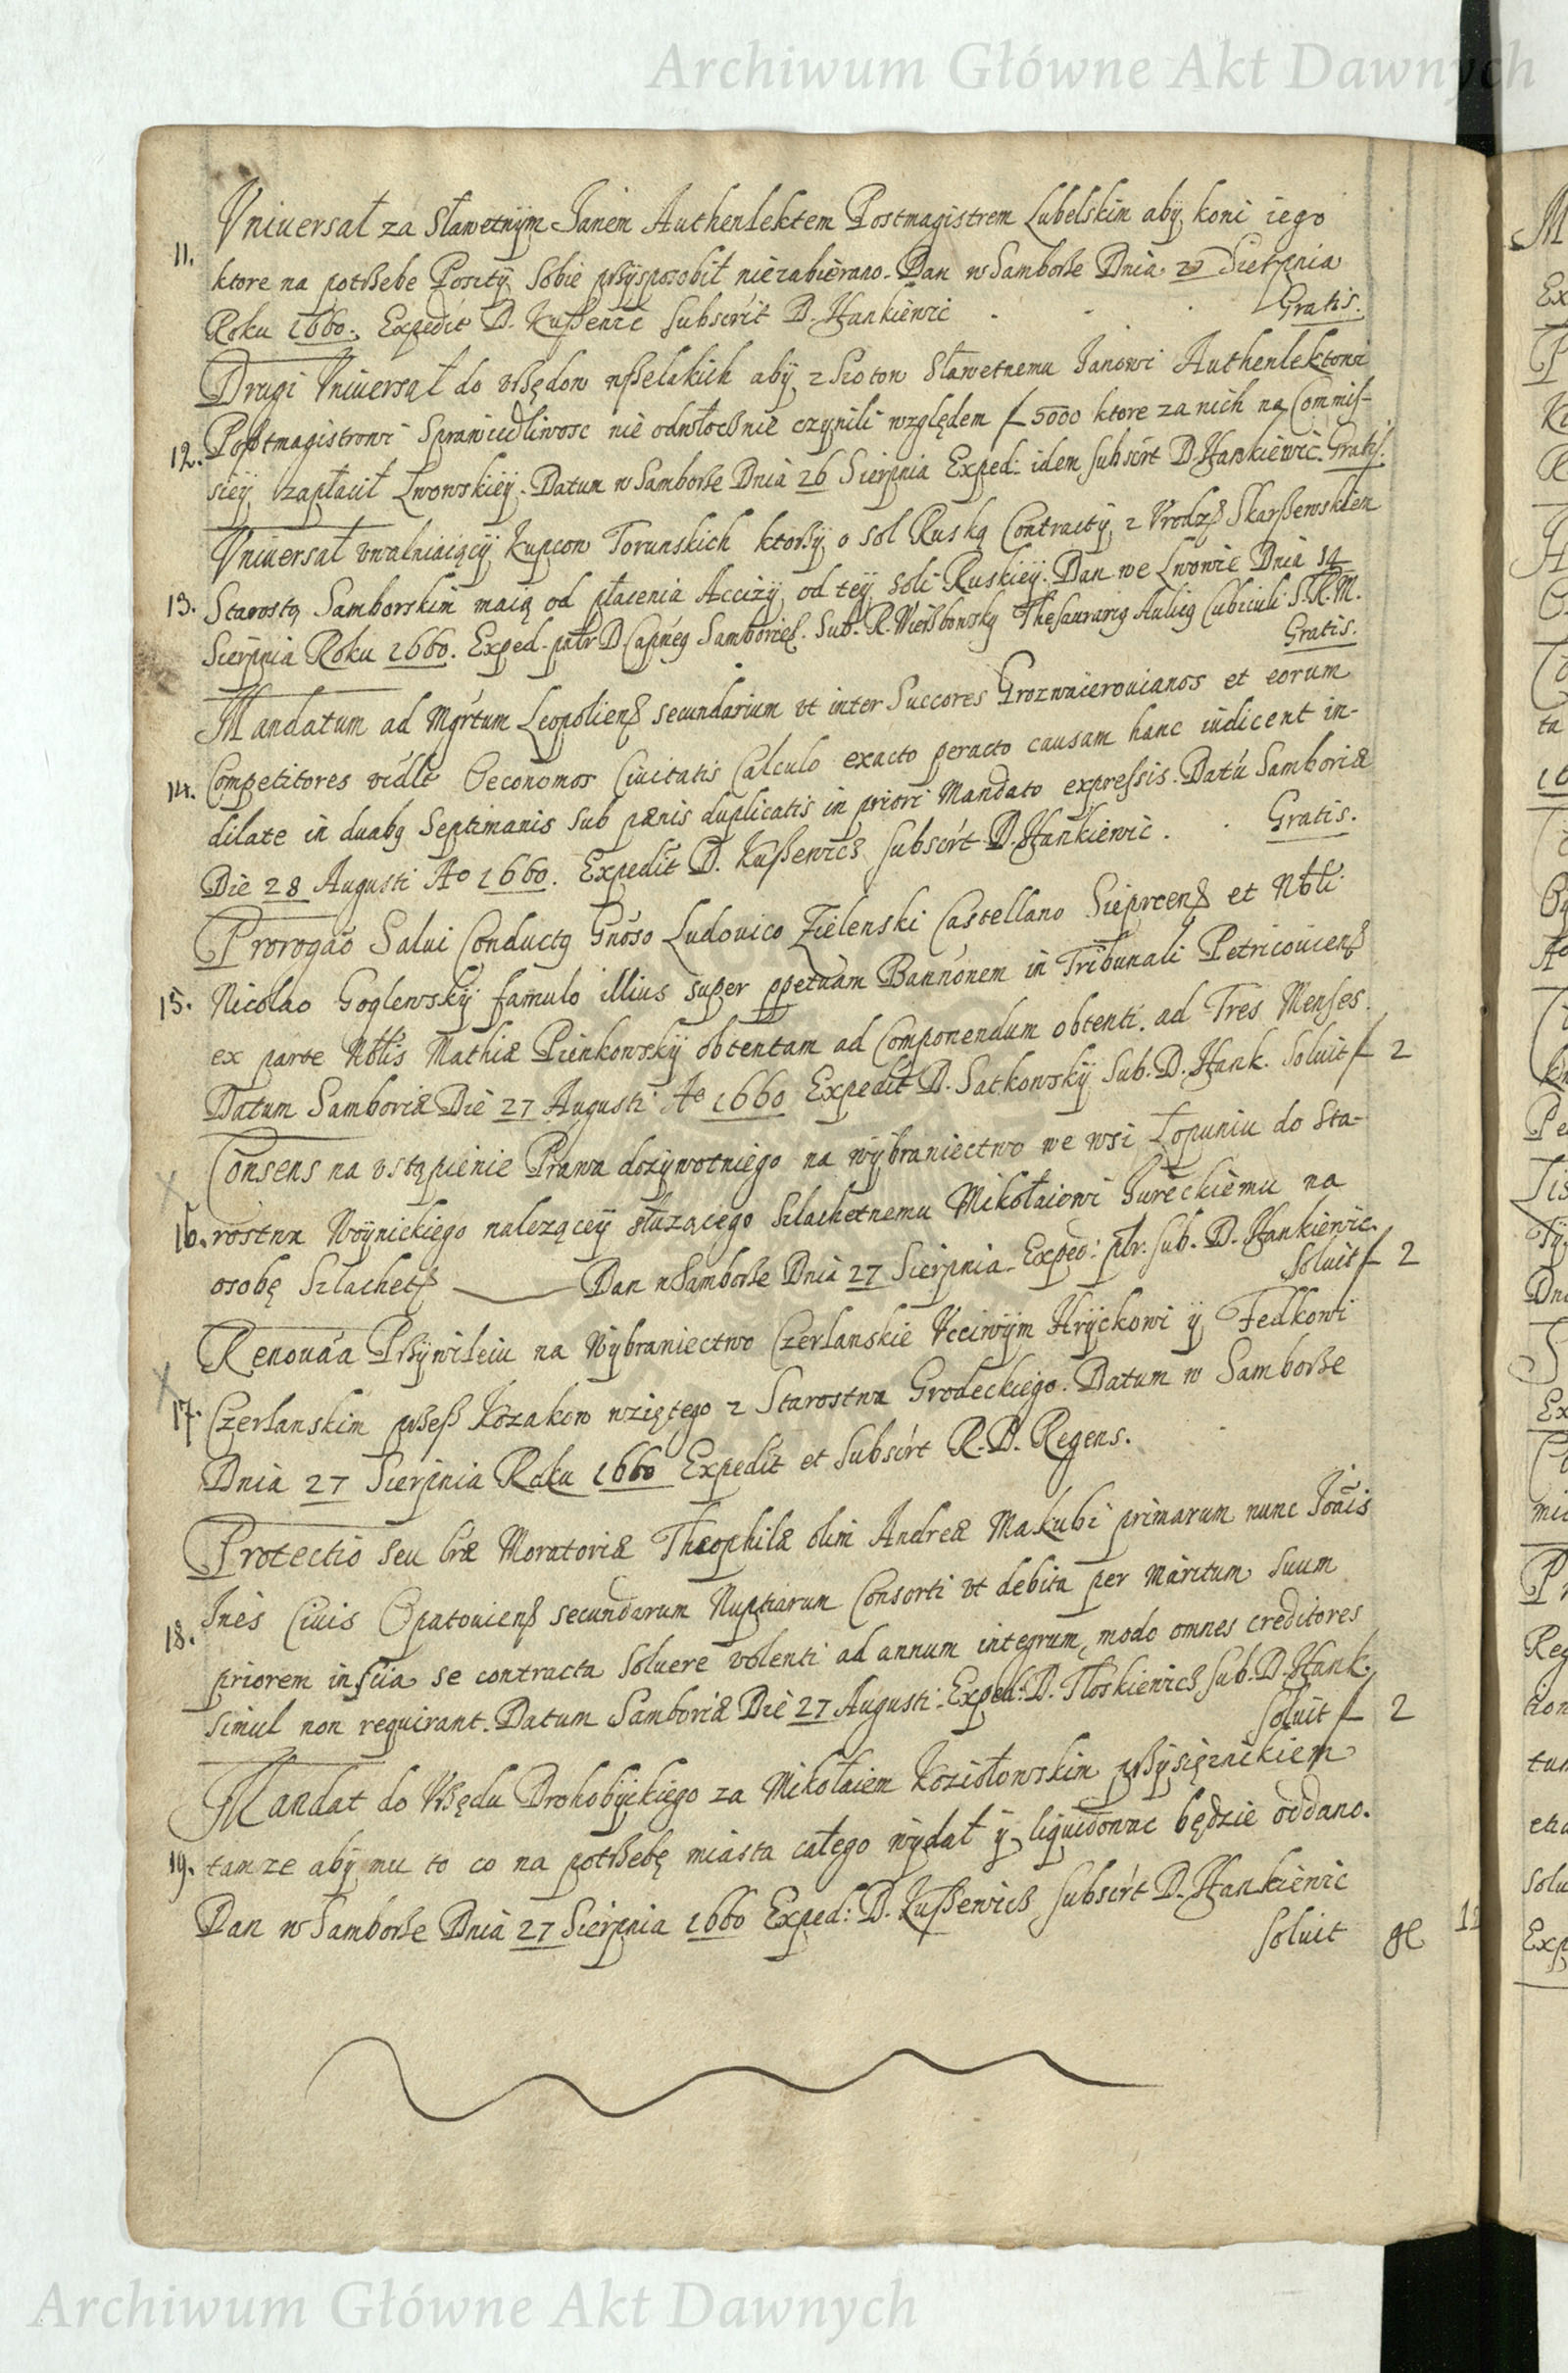 Archiwum Główne Akt Dawnych
Vniuersał za Sławetnÿm Janem Authenlektem Postmagistrem Lubelskim abÿ koni iego
11. ktore na potrzebe Posztÿ sobie przÿsposobił niezabierano. Dan w Samborze Dnia 27 Sierpnia
Roku 1660. Expedit D. Kuszewic Subscrit D. Hankiewic Gratis.
Drugi Vniuersał do vrzędow wszelakich abÿ z Szotow Sławetnemu Janowi Authenlektowi
12. Postmagistrowi Sprawiedliwosc nie odwłocznie czynili względem f 5000 ktore za nich na Commis-
sieÿ zapłacił Lwowskieÿ. Datum w Samborze Dnia 26 Sierpnia Exped: idem subscrt D. Hankiewic. Gratis.
Vniuersał vwalniaiącÿ kupcow Torunskich ktorzÿ o sol Ruską Contractÿ z Vrodz Skarszewskiem
13. Starostą Samborskim maią od płacenia Accizÿ od teÿ soli Ruskieÿ. Dan we Lwowie Dnia 14
Sierpnia Roku 1660. Exped. D Samborien. Sub. R. Wierzbowsky Thesaurarig Aulicg Cubiculi S.R.M.
Gratis.
Mandatum ad Mgrtum Leopolien secundarium vt inter Succores Grozwaierouianos et eorum
14. Competitores vidlt Oeconomos Ciuitatis Calculo exacto peracto causam hanc iudicent in-
dilate in duabg Septimanis sub pænis duplicatis in priori Mandato expressis. Datu Samboriæ
Die 28 Augusti Ao 1660. Expedit D. Kuszewicz subscrt D. Hankiewic. Gratis.
Prorogao Salui Conductg Gnoso Ludouico Zielenski Castellano Sieprcen et Nbli
15. Nicolao Goglewskÿ famulo illius super ppetuam Bannonem in Tribunali Petricouien
ex parte Nblis Mathiæ Pienkowskÿ obtentam ad Componendum obtenti. ad Tres Menses.
Datum Samboriæ Die 27 Augusti Ao 1660 Expedit D. Satkowskÿ Sub. D. Hank. Soluit f 2
Consens na vstąpienie Prawa dozÿwotniego na wÿbraniectwo we wsi Łopuniu do Sta-
16. rostwa Woÿnickiego naleząceÿ słuzącego Szlachetnemu Mikołaiowi Jureckiemu na
osobę Szlachet Dan w Samborze Dnia 27 Sierpnia. Exped: ptr. sub. D. Hankiewic.
Soluit f 2
Renouaa Przÿwileiu na Wÿbraniectwo Czerlanskie Vcciwÿm Hrÿckowi ÿ Fedkowi
17. Czerlanskim przesz Kozakow wziętego z Starostwa Grodeckiego. Datum w Samborze
Dnia 27 Sierpnia Roku 1660 Expedit et Subscrt R.D. Regens.
Protectio seu lræ Moratoriæ Theophilæ olim Andreæ Makubi primarum nunc Joais
Jnes Ciuis Opatouien secundarum Nuptiarum Consorti vt debita per Maritum suum
18. priorem inscia se contracta Soluere volenti ad annum integrum, modo omnes creditores
simul non requirant. Datum Samboriæ Die 27 Augusti. Exped: D. Tłoskiewicz. Sub. D. Hank.
Soluit f 2
Mandat do Vrzędu Drohobÿckiego za Mikołaiem Koziołowskim przÿsięznikiem
19. tamze abÿ mu to co na potrzebę miasta całego wÿdał ÿ liquidowac będzie oddano.
Dan w Samborze Dnia 27 Sierpnia 1660 Exped: D. Kuszewicz subscrt D. Hankiewic
Soluit gl
Archiwum Główne Akt Dawnych